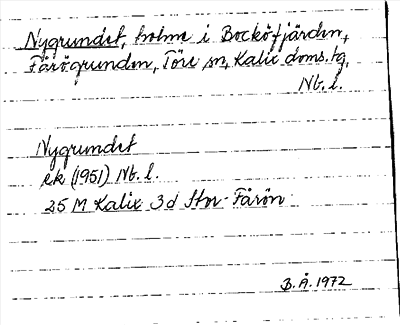 Nygrundet, holme i Bocköfjärden,
Fårögrunden, Töre sn, Kalix doms.tg,
Nb. l.
Nygrundet
ek (1951) Nb. l.
25 M Kalix 3d Stor-Fårön
B.Å. 1972